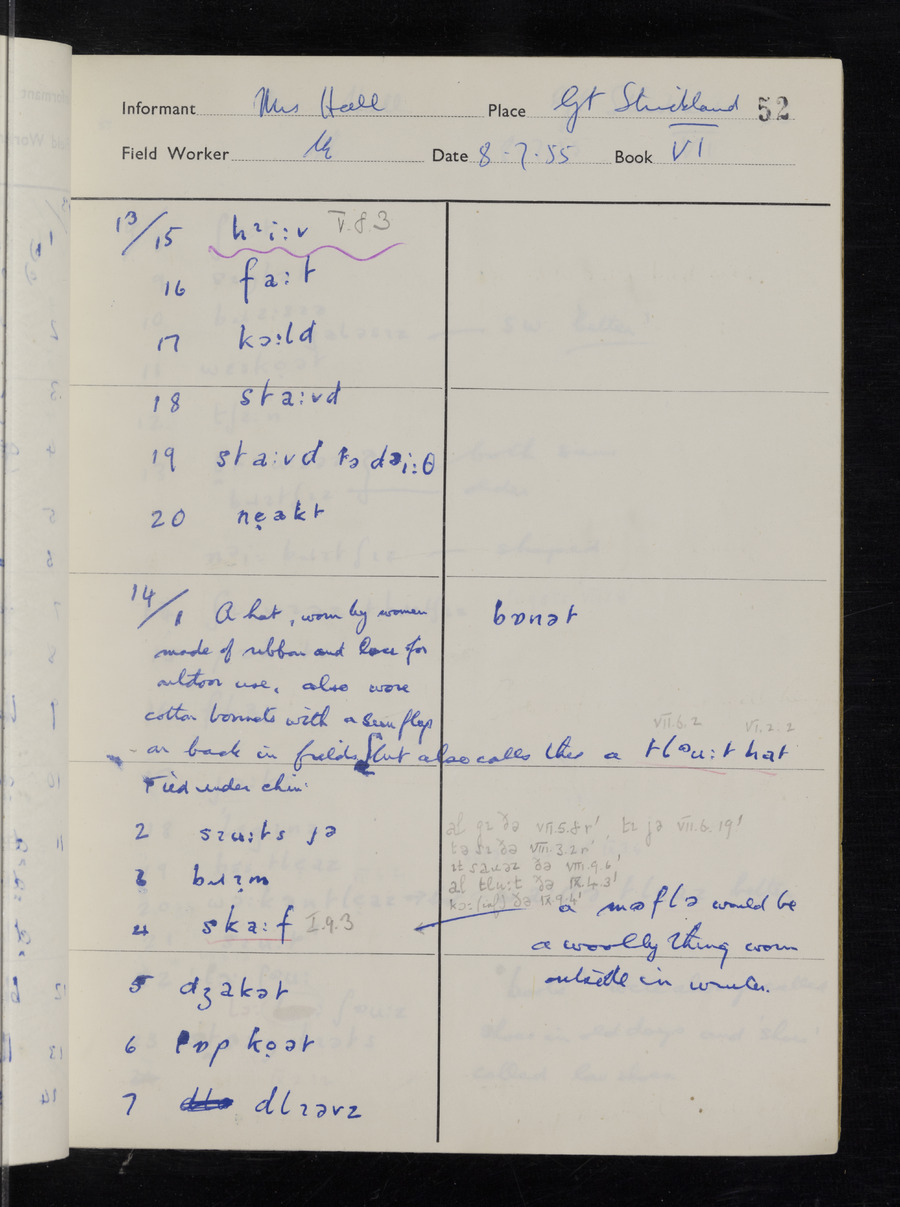 Informant Mrs Hall Place Gt Strickland 52
Field Worker Date 8-7-55 Book VI
13/15 hᵊi:v V.8.3
16 fa:t
17 kɔ:ld
18 sta:vd
19 sta:vd tə dəi:θ
20 nẹakt
14/1 A hat, worn by women bɒnət
made of ribbon and lace for
outdoor use, also wore
cotton bonnets with a sun flap
VII.6.2 VI.2.2
on back in fields, but also calls this a tlᵊu:t hat
Tied under chin.
2 sɪu:ts jə
al gɪ ðə VII.5.8r', tɪ jə VII.6.19'
VIII.3.2r'
ðə VIII.9.6'
3
al tlu:t ðə IX.4.3'
ðə IX.9.4'
4 ska:f I.9.3 a mɔflə would be
a woolly thing worn
outside in winter.
5 dʒakət
6 tɒp kọət
7 dlɪəvz